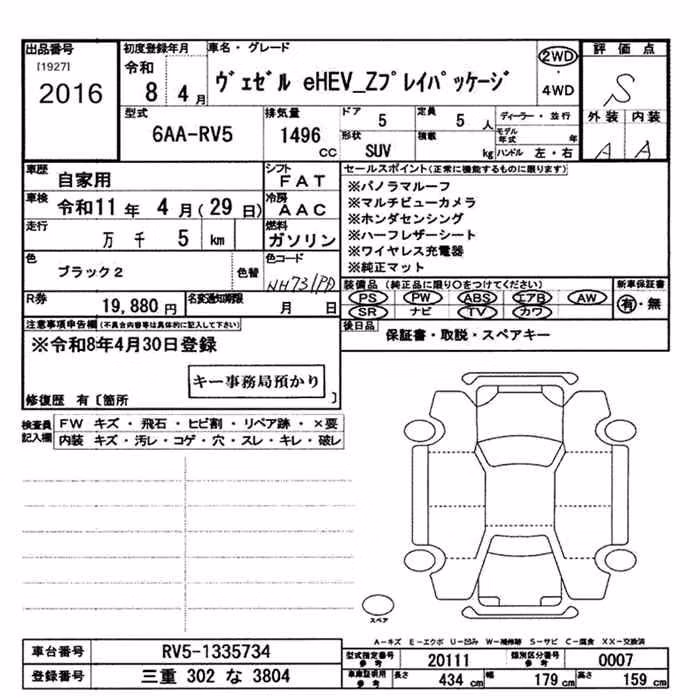 出品番号 初度登録年月 車名・グレード 2WD 評価点
[1927] 令和 ヴェゼル eHEV_Zプレイパッケージ S
2016 8 4月 4WD
型式 排気量 ドア 5 定員 5人 ディーラー・並行 外装 内装
6AA-RV5 1496cc 形状 SUV 積載 kg モデル年式 年 A A
ハンドル 左・右
車歴 自家用 シフト FAT セールスポイント(正常に機能するものに限ります)
車検 令和11年 4月(29日) 冷房 AAC ※パノラマルーフ
※マルチビューカメラ
走行 万 千 5 km 燃料 ガソリン ※ホンダセンシング
※ハーフレザーシート
色 ブラック2 色替 色コード NH731PD ※ワイヤレス充電器
※純正マット
R券 19,880円 名変通知期限 月 日 装備品(純正品に限り○をつけてください) 新車保証書
PS PW ABS エアB AW 有・無
SR ナビ TV カワ
注意事項申告欄(不具合内容等は具体的に記入して下さい) 後日品 保証書・取説・スペアキー
※令和8年4月30日登録
キー事務局預かり
修復歴 有〔箇所 〕
検査員記入欄 FW キズ・飛石・ヒビ割・リペア跡・×要
内装 キズ・汚レ・コゲ・穴・スレ・キレ・破レ
スペア
A-キズ E-エクボ U-凹み W-補修跡 S-サビ C-腐食 XX-交換済
車台番号 RV5-1335734 型式指定番号 参考 20111 類別区分番号 参考 0007
登録番号 三重 302 な 3804 車庫証明用 参考 長さ 434 cm 幅 179 cm 高さ 159 cm